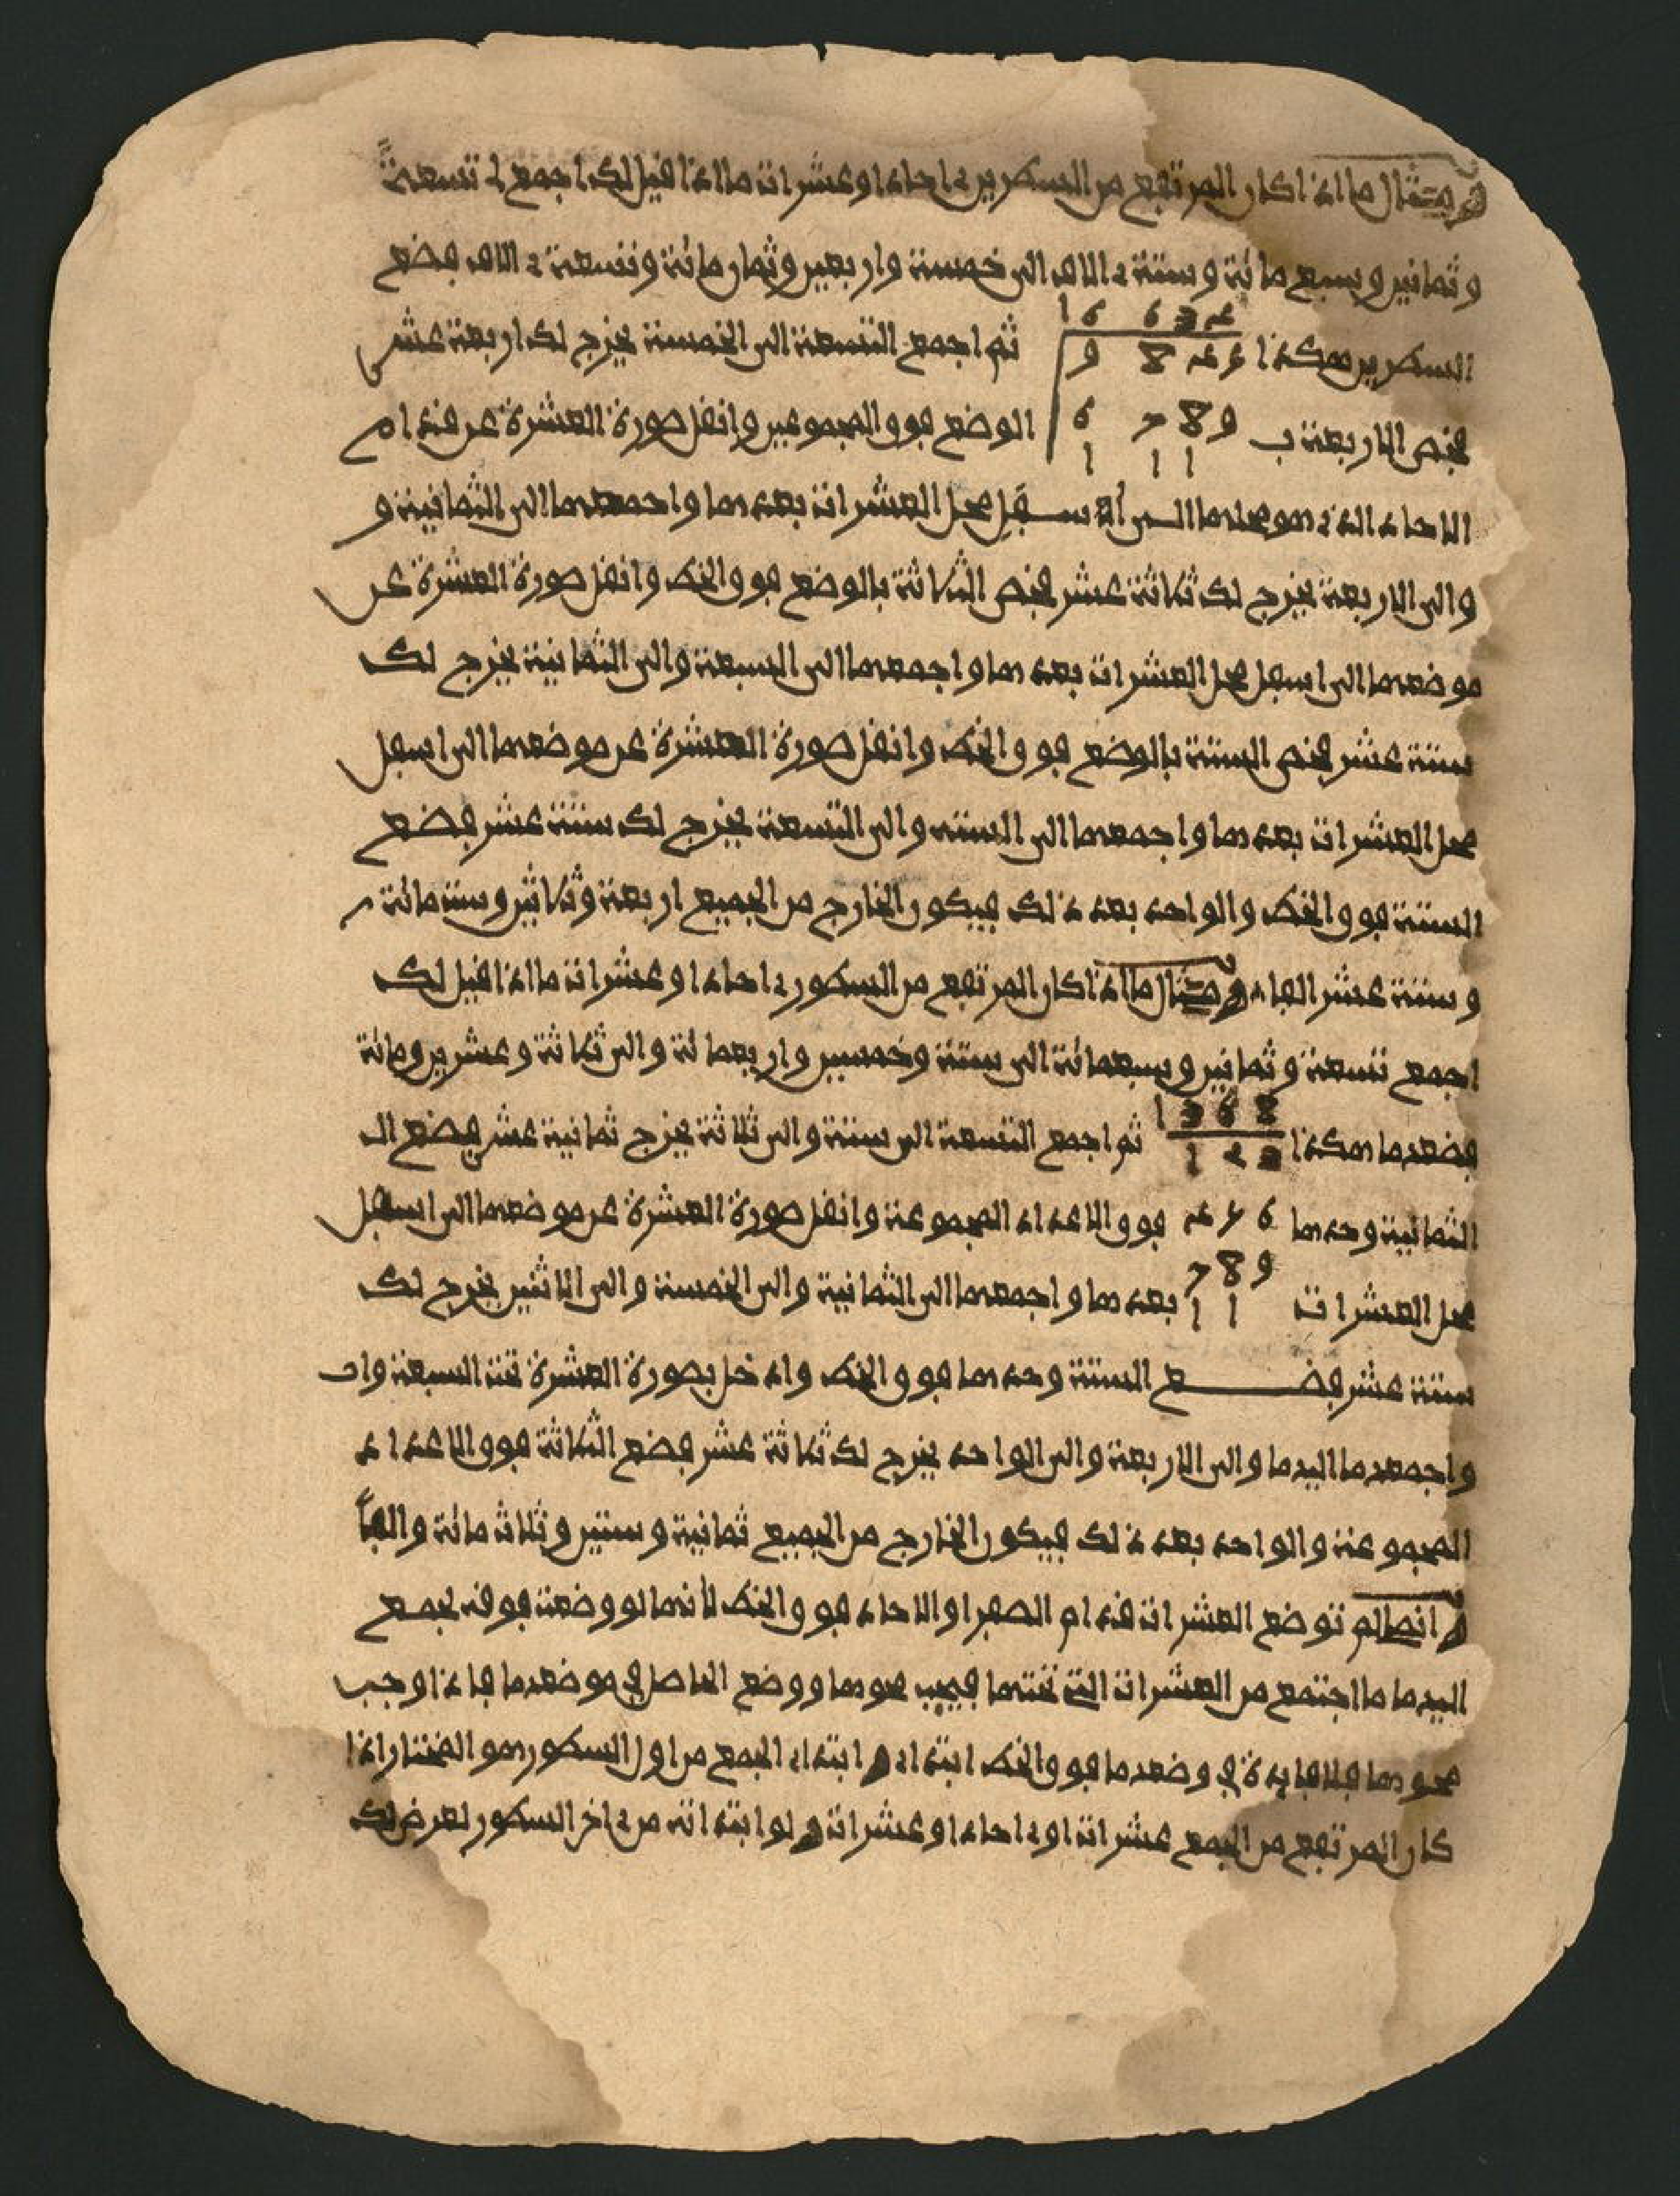 ومثال ما اذا كان المرتفع من السطرين ءاحادا وعشرات ما اذا قيل لك اجمع لي تسعة
وثمانين وسبع مائة وستة ءالاف الى خمسة واربعين وثمان مائة وتسعة ءالاف فضع
16634
السطرين هكذا 9845 ثم اجمع التسعة الى الخمسة يخرج لك اربعة عشر
6789
فخص الاربعة ب الوضع فوق المجموعين وانقل صورة العشرة عن قدام
111
الاحاد الذي هو محلها الى اسفل محل العشرات بعدها واجمعها الى الثمانية و
والى الاربعة يخرج لك ثلاثة عشر فخص الثلاثة بالوضع فوق الخط وانقل صورة العشرة عن
موضعها الى اسفل محل العشرات بعدها واجمعها الى السبعة والى الثمانية يخرج لك
ستة عشر فخص الستة بالوضع فوق الخط وانقل صورة العشرة عن موضعها الى اسفل
محل العشرات بعدها واجمعها الى الستة والى التسعة يخرج لك ستة عشر فضع
الستة فوق الخط والواحد بعد ذلك فيكون الخارج من الجميع اربعة وثلاثين وست مائة
وستة عشر الفا ومثال ما اذا كان المرتفع من السطور ءاحادا وعشرات ما اذا قيل لك
اجمع تسعة وثمانين وسبعمائة الى ستة وخمسين واربعمائة والى ثلاثة وعشرين ومائة
1368
فضعهما هكذا 123 ثم اجمع التسعة الى ستة والى ثلاثة يخرج ثمانية عشر فضع ال
الثمانية وحدها 456 فوق الاعداد المجموعة وانقل صورة العشرة عن موضعها الى اسفل
789
محل العشرات 11 بعدها واجمعها الى الثمانية والى الخمسة والى الاثنين يخرج لك
ستة عشر فضع الستة وحدها فوق الخط وادخل بصورة العشرة تحت السبعة وا
واجمعهما اليهما والى الاربعة والى الواحد يخرج لك ثلاثة عشر فضع الثلاثة فوق الاعداد
المجموعة والواحد بعد ذلك فيكون الخارج من الجميع ثمانية وستين وثلاث مائة والفا
وانما لم توضع العشرات قدام الصفر او الاحاد فوق الخط لانها لو وضعت فوقه لجمع
اليهما ما اجتمع من العشرات التي تحتها فيجب محوها ووضع الحاصل في موضعهما فاذا وجب
محوها فلا فايدة في وضعهما فوق الخط ابتداء وابتداء الجمع من اول السطور هو المختار اذا
كان المرتفع من الجمع عشرات او ءاحادا وعشرات ولو ابتداته من ءاخر السطور لعرض لك